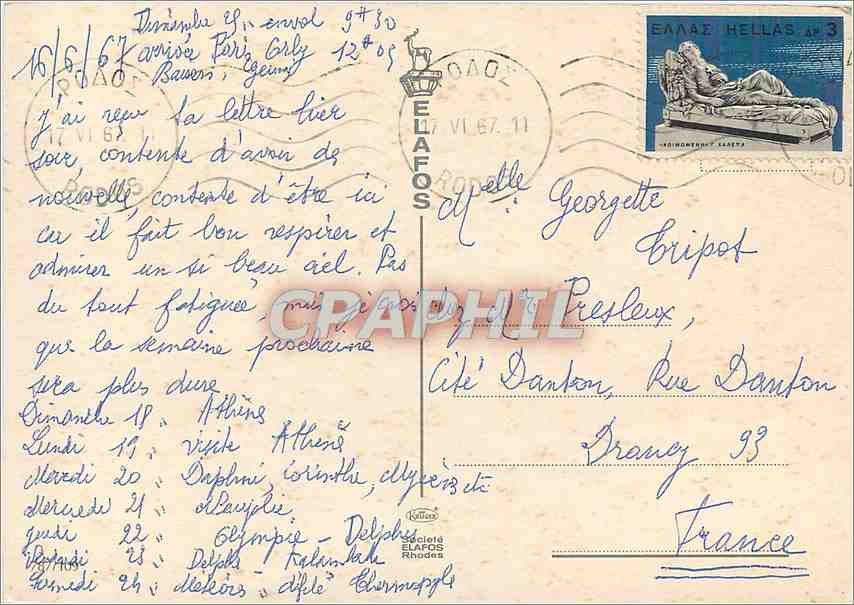 Dimanche 25, envol 9H30
16/6/67 arrivée Paris Orly 12H05
Baisers,
j'ai reçu ta lettre hier
soir, contente d'avoir de
nouvelle, contente d'être ici
car il fait bon respirer et
admirer un si beau ciel. Pas
du tout fatiguée, mais je crois
que la semaine prochaine
sera plus dure
Dimanche 18 " Athène
Lundi 19 " visite Athène
Mardi 20 " Daphni, Corinthe, etc
Mercredi 21 "
jeudi 22 " Olympie - Delphes
Vendredi 23 " Delphes Kalambaka
Samedi 24 " Météors - défilé Thermopyle
ELAFOS
ΕΛΛΑΣ HELLAS ΔΡ 3
«ΚΟΙΜΩΜΕΝΗ» Γ. ΧΑΛΕΠΑ
ΡΟΔΟΣ
17 VI 67. 11
RODOS
ΡΟΔΟΣ
17 VI 67. 11
RODOS
Melle Georgette
Tripot
chez Mr Presleux,
Cité Danton, Rue Danton
Drancy 93
France
CPAPHIL
Société
ELAFOS
Rhodes